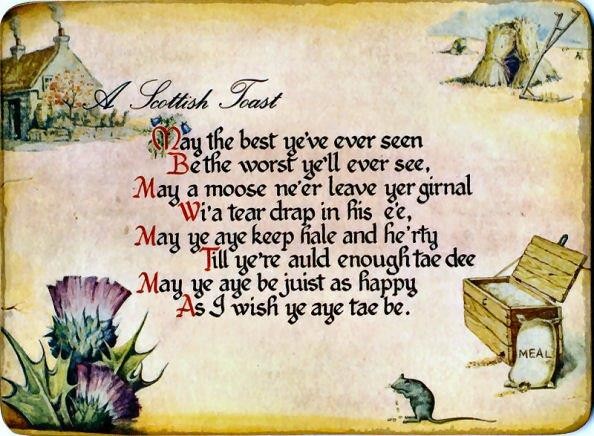 A Scottish Toast
May the best ye've ever seen
Be the worst ye'll ever see,
May a moose ne'er leave yer girnal
Wi'a tear drap in his e'e,
May ye aye keep hale and he'rty
Till ye're auld enough tae dee
May ye aye be juist as happy
As I wish ye aye tae be.
MEAL